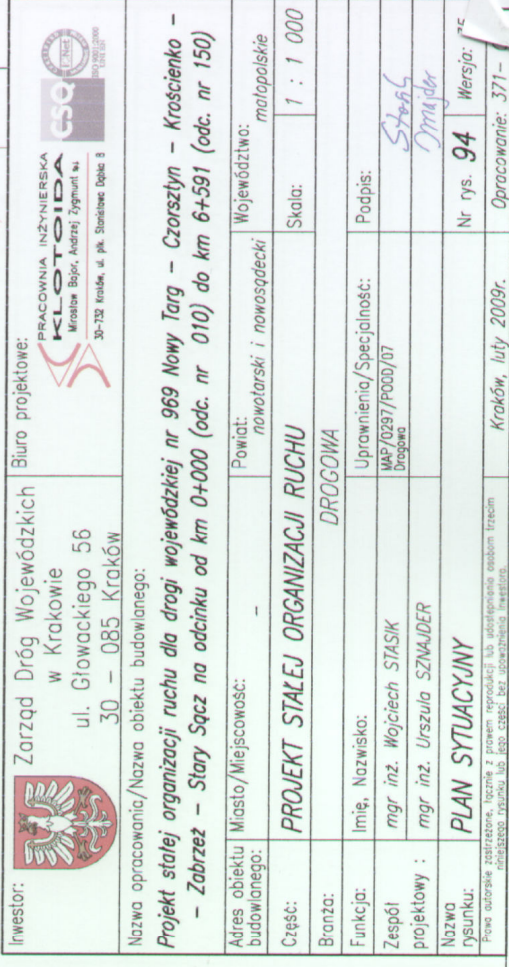 Inwestor:
Zarząd Dróg Wojewódzkich
w Krakowie
ul. Głowackiego 56
30 – 085 Kraków
Biuro projektowe:
PRACOWNIA INŻYNIERSKA
KLOTOIDA
Mirosław Bajor, Andrzej Zygmunt s.j.
30-732 Kraków, ul. płk. Stanisława Dąbka 8
CSQ
IQNet
ISO 9001:2000
Nazwa opracowania/Nazwa obiektu budowlanego:
Projekt stałej organizacji ruchu dla drogi wojewódzkiej nr 969 Nowy Targ – Czorsztyn – Krościenko –
– Zabrzeż – Stary Sącz na odcinku od km 0+000 (odc. nr 010) do km 6+591 (odc. nr 150)
Adres obiektu
budowlanego:
Miasto/Miejscowość:
–
Powiat:
nowotarski i nowosądecki
Województwo:
małopolskie
Część:
PROJEKT STAŁEJ ORGANIZACJI RUCHU
Skala:
1 : 1 000
Branża:
DROGOWA
Funkcja:
Imię, Nazwisko:
Uprawnienia/Specjalność:
Podpis:
Zespół
projektowy :
mgr inż. Wojciech STASIK
MAP/0297/POOD/07
Drogowa
mgr inż. Urszula SZNAJDER
Nazwa
rysunku:
PLAN SYTUACYJNY
Nr rys. 94
Wersja:
Prawa autorskie zastrzeżone, łącznie z prawem reprodukcji lub udostępniania osobom trzecim
niniejszego rysunku lub jego części bez upoważnienia Inwestora.
Kraków, luty 2009r.
Opracowanie: 371–